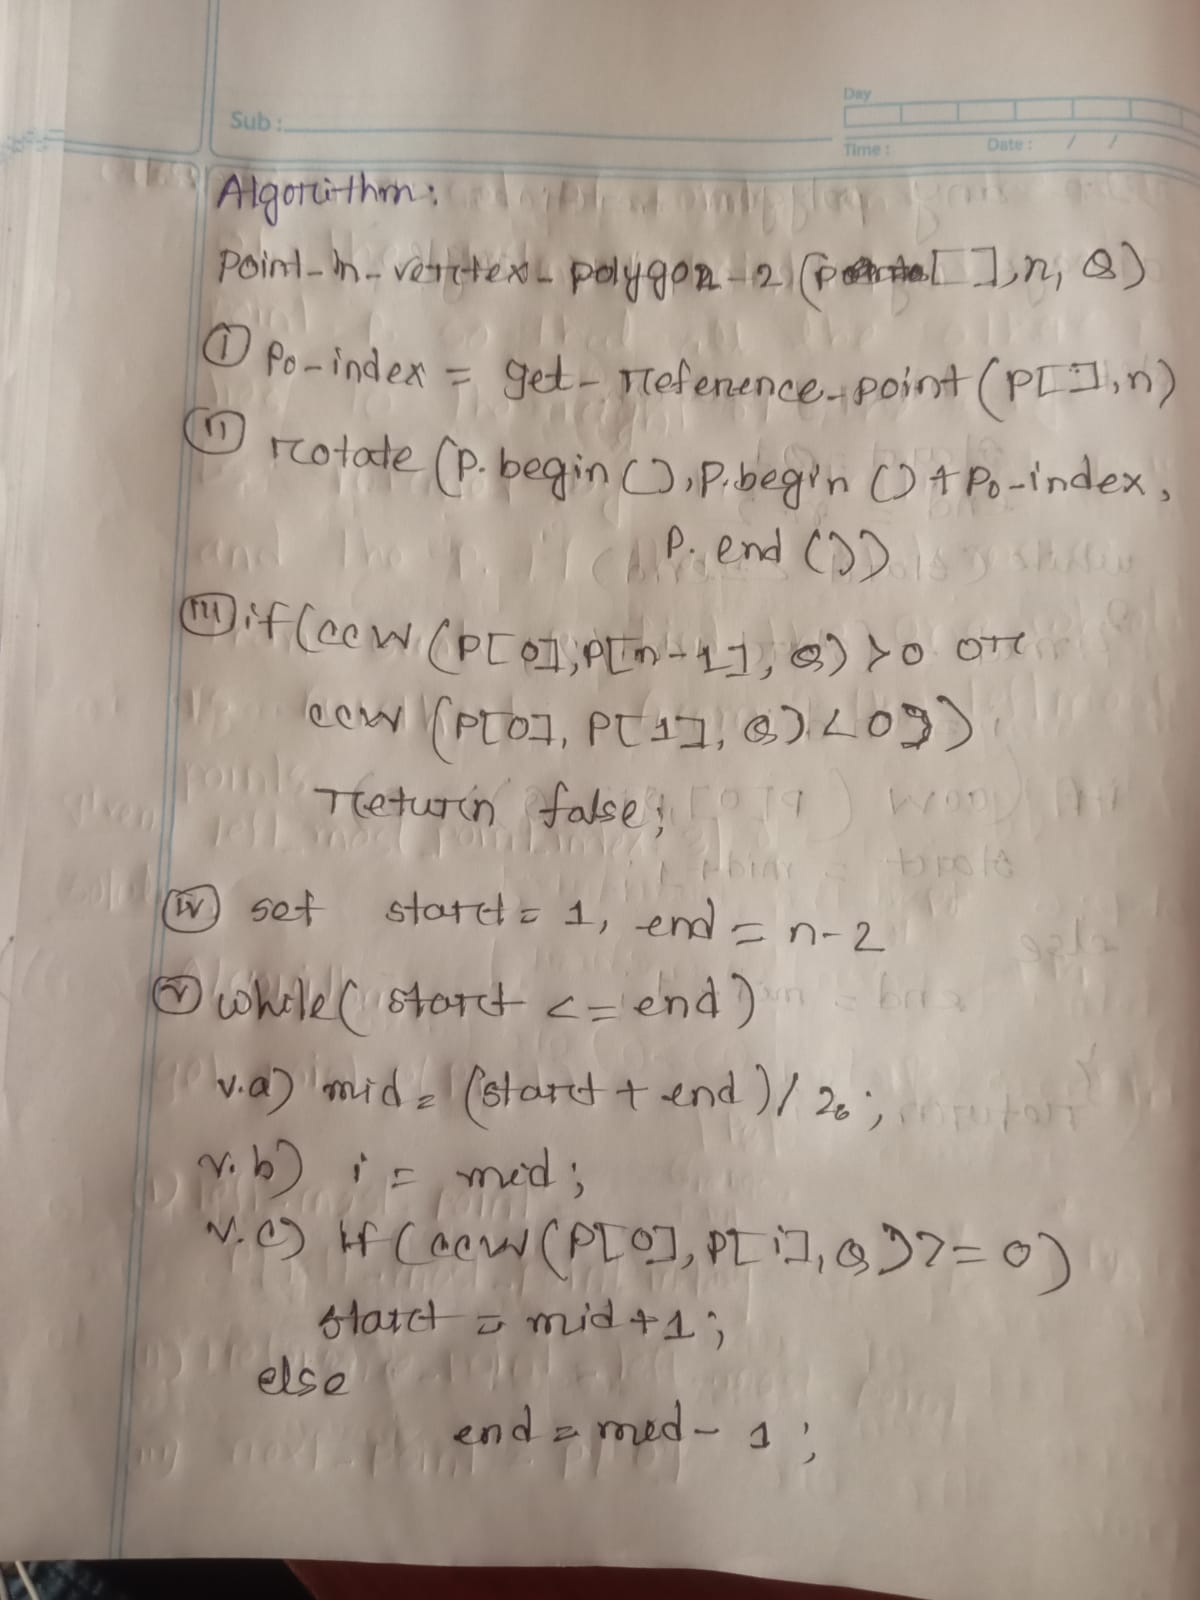 Sub :
Day
Time :
Date : / /
Algorithm:
Point-in-vertex-polygon-2 (P[], n, Q)
(i) P0-index = get-reference-point (P[], n)
(ii) rotate (P.begin(), P.begin() + P0-index,
P.end())
(iii) if (ccw (P[0], P[n-1], Q) > 0 or
ccw (P[0], P[1], Q) < 0)
return false;
(iv) set start = 1, end = n-2
(v) while (start <= end)
v.a) mid = (start + end) / 2;
v.b) i = mid;
v.c) if (ccw (P[0], P[i], Q) >= 0)
start = mid + 1;
else
end = mid - 1;